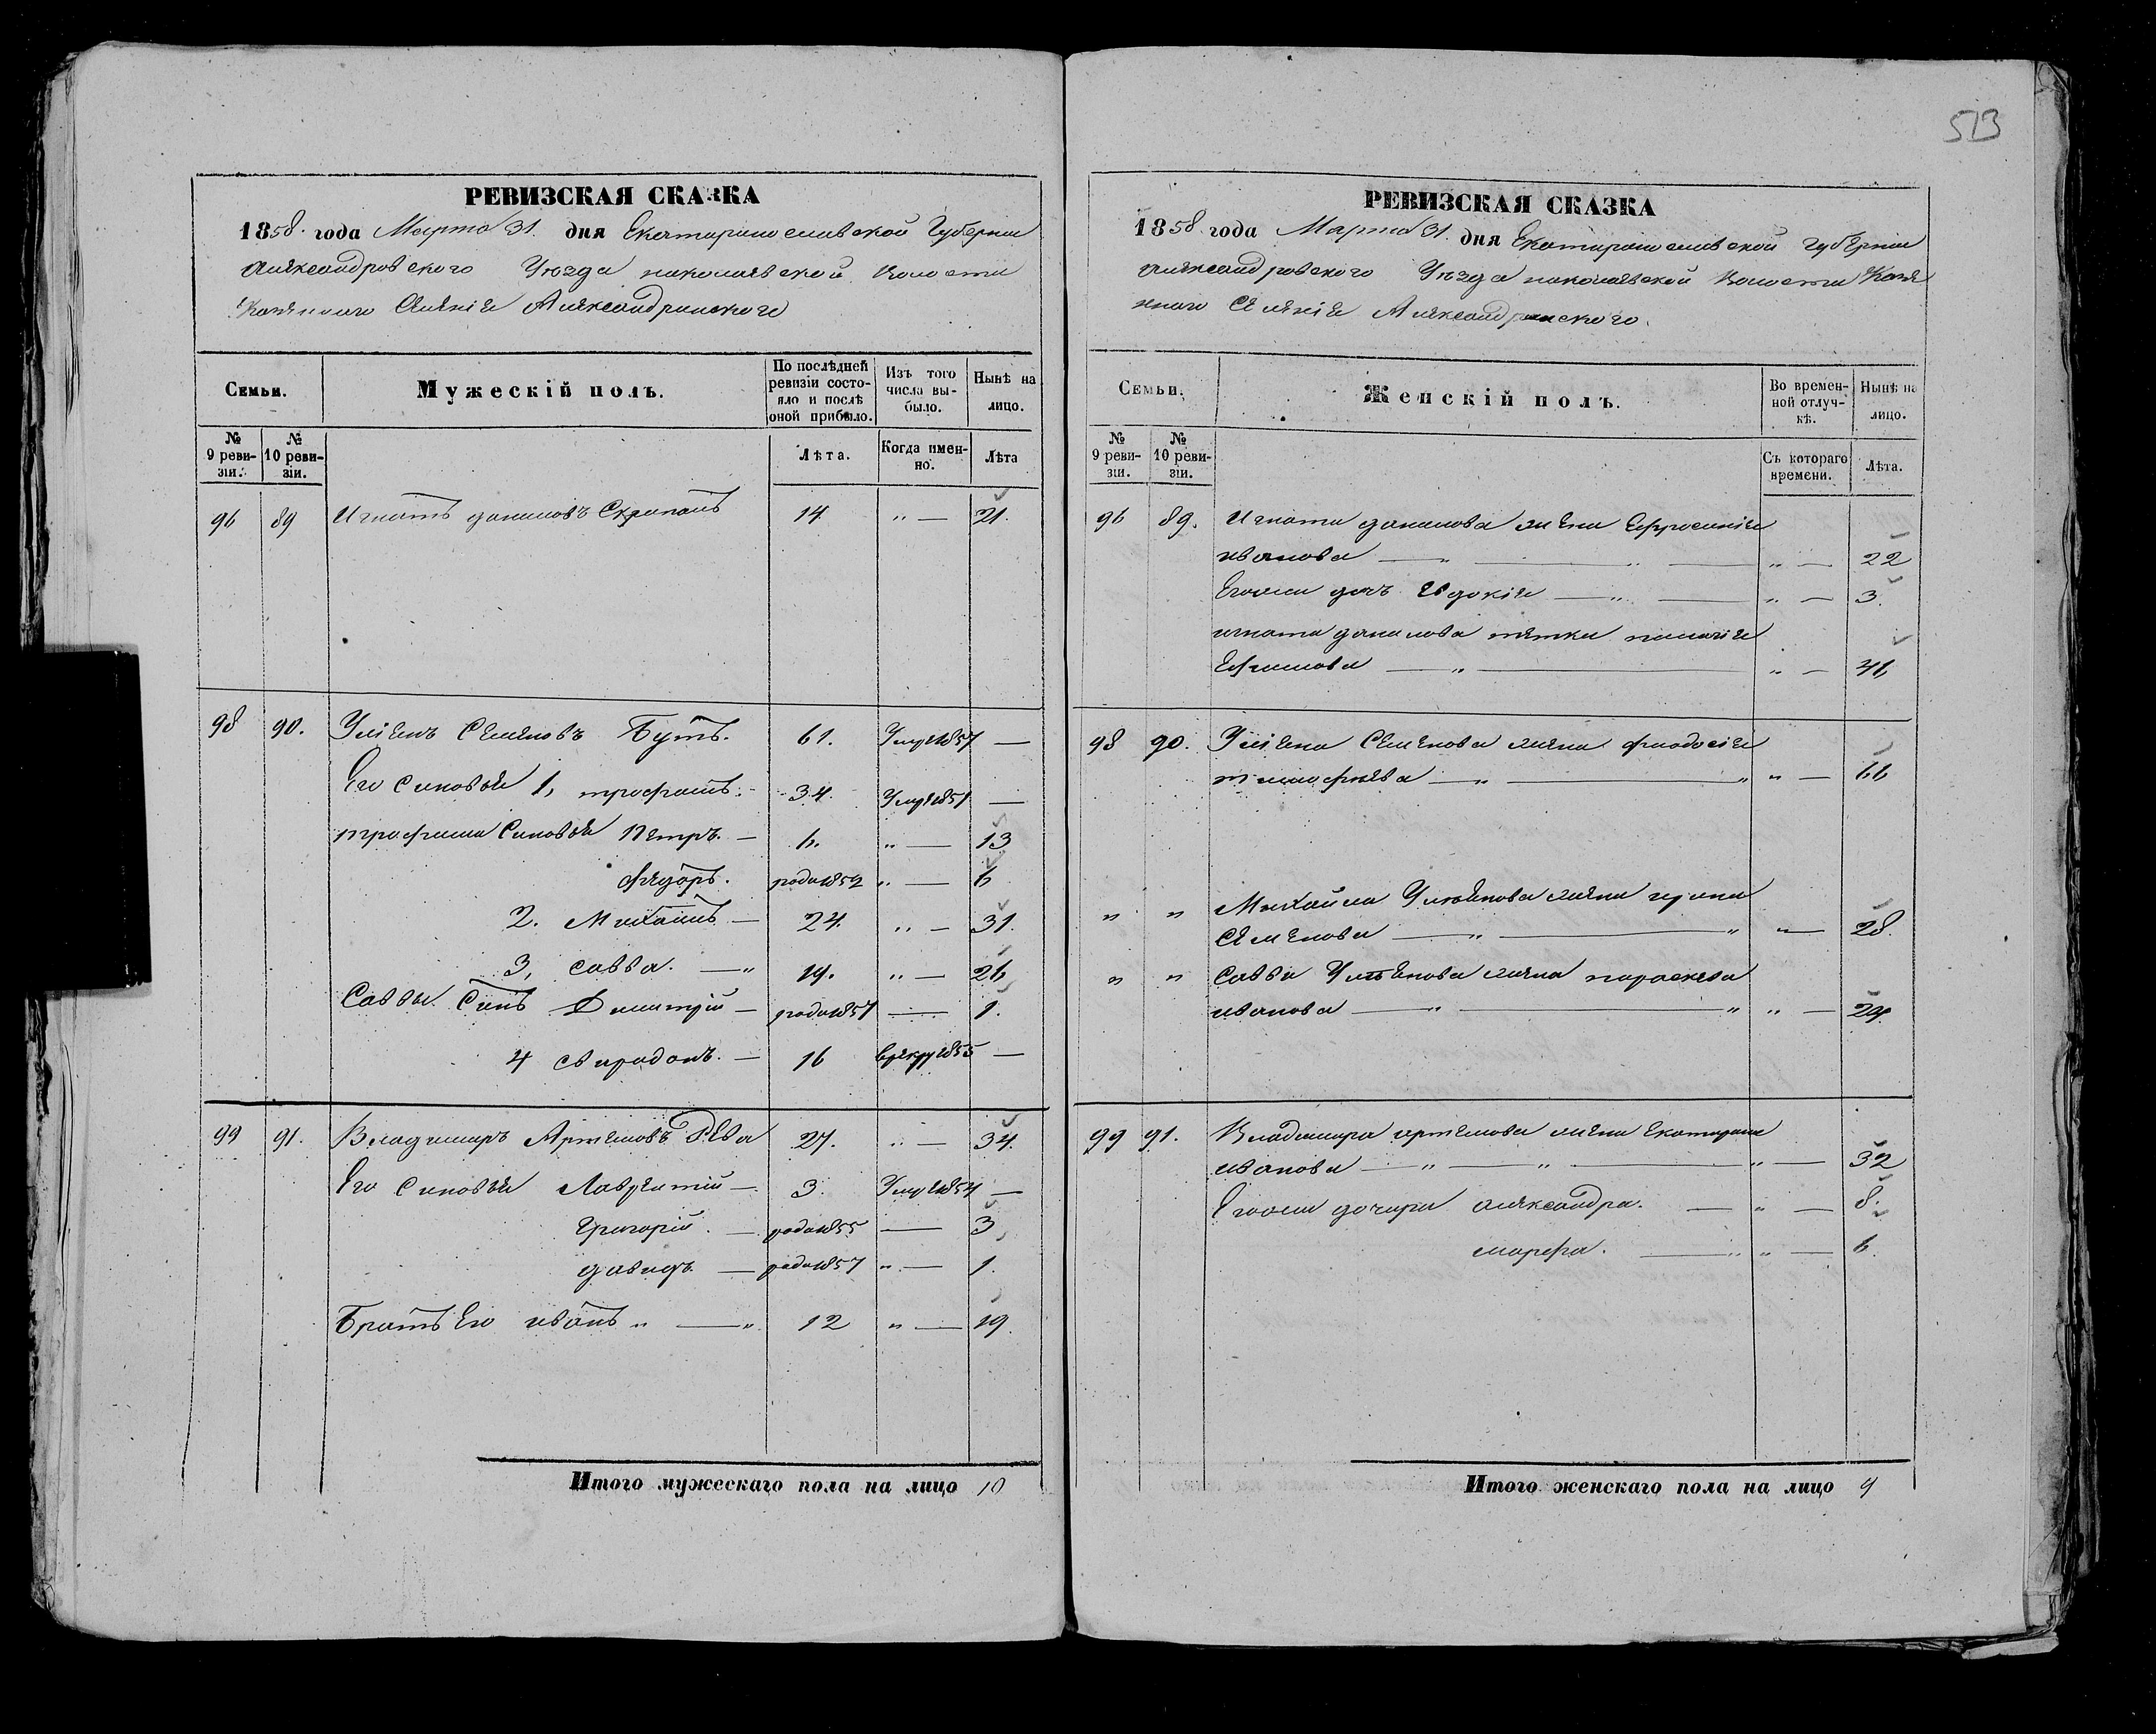 513
РЕВИЗСКАЯ СКАЗКА
1858 года Марта 31. дня Екатеринославской Губернии
Александровского Уезда николаевской Волости
Казенного Селения Александринского
Семьи. Мужескій полъ. По послѣдней ревизіи состояло и послѣ оной прибыло. Изъ того числа выбыло. Нынѣ на лицо.
№ 9 ревизіи. № 10 ревизіи. Лѣта. Когда именно. Лѣта
96 89 Игнатъ даниловъ 14 " — 21.
98 90. Уліянъ Семеновъ Бутъ. 61. Умре 1857 —
Его Сыновья 1, трофимъ. 34. Умре 1851 —
трофима Сыновья Петръ. — 6. " — 13
Федоръ. роди 1852 " — 6
2. Михаилъ — 24. " — 31.
3, савва. — " 19. " — 26
Саввы. Сынъ Димитрій — роди 1857 — 1.
4 свиридонъ. — 16 врекру 1855 —
99 91. Владимиръ Артемовъ Рева 27. " — 34.
Его Сыновья Лаврентій — 3. Умре 1854 —
Григорій. — роди 1855 — 3
давидъ — роди 1857 " — 1.
Братъ Его иванъ " — " 12 " — 19.
Итого мужескаго пола на лицо 10
РЕВИЗСКАЯ СКАЗКА
1858 года Марта 31. дня Екатеринославской Губернии
Александровского Уезда николаевской Волости Казе
нного Селения Александринского.
Семьи. Женскій полъ. Во временной отлучкѣ. Нынѣ на лицо.
№ 9 ревизіи. № 10 ревизіи. Съ котораго времени. Лѣта.
96 89. Игната данилова жена Ефросиния
иванова — " — " — " — 22
Егожъ дочь Евдокия — " — " — 3.
игната данилова тетка
Ефимова — " — " — 46
98 90. Уліяна Семенова жена феодосія
тимофеева — " — " " — 66
" " Михайла Ульянова жена ирина
Семенова — " — " " — 28.
" " Саввы Ульянова жена параскева
иванова — " — " " — 24.
99 91. Владимира артемова жена Екатирина
иванова — " — " — " — 32
Егожъ дочери александра. — " — 8.
марфа. — " " — 6.
Итого женскаго пола на лицо 9